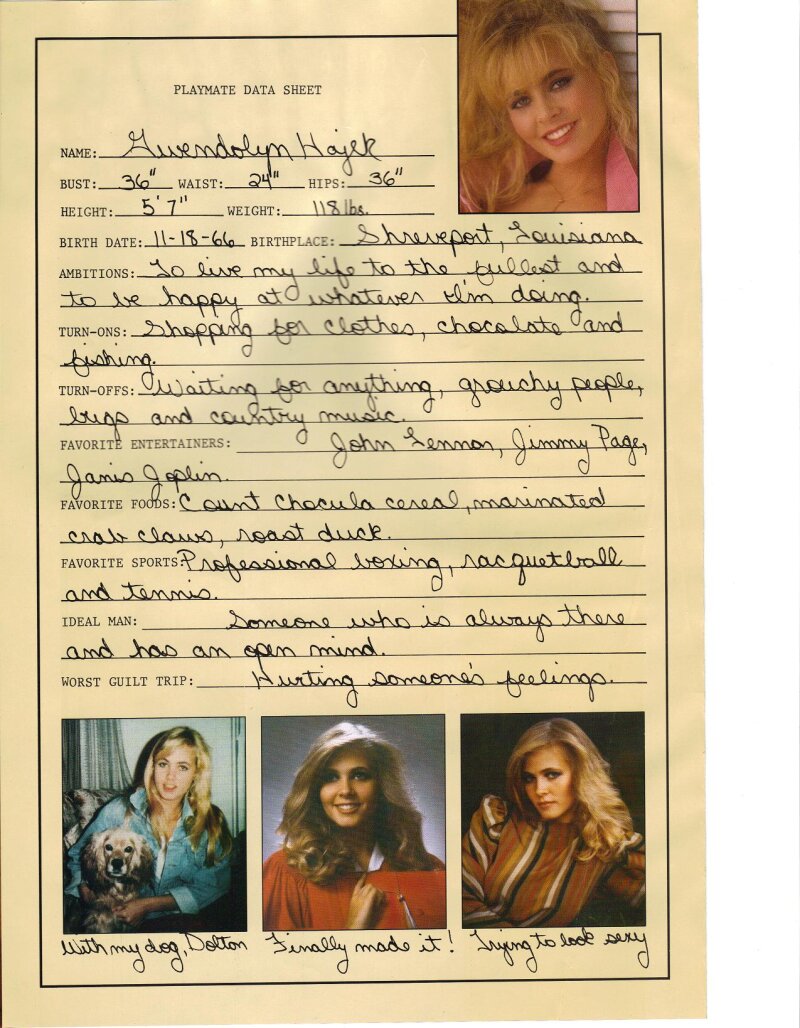 PLAYMATE DATA SHEET
NAME: Gwendolyn Hajek
BUST: 36" WAIST: 24" HIPS: 36"
HEIGHT: 5'7" WEIGHT: 118 lbs.
BIRTH DATE: 11-18-66 BIRTHPLACE: Shreveport, Louisiana
AMBITIONS: To live my life to the fullest and
to be happy at whatever I'm doing.
TURN-ONS: Shopping for clothes, chocolate and
fishing.
TURN-OFFS: Waiting for anything, grouchy people,
bugs and country music.
FAVORITE ENTERTAINERS: John Lennon, Jimmy Page,
Janis Joplin.
FAVORITE FOODS: Count Chocula cereal, marinated
crab claws, roast duck.
FAVORITE SPORTS: Professional boxing, racquetball
and tennis.
IDEAL MAN: Someone who is always there
and has an open mind.
WORST GUILT TRIP: Hurting someone's feelings.
With my dog, Dolton Finally made it! Trying to look sexy